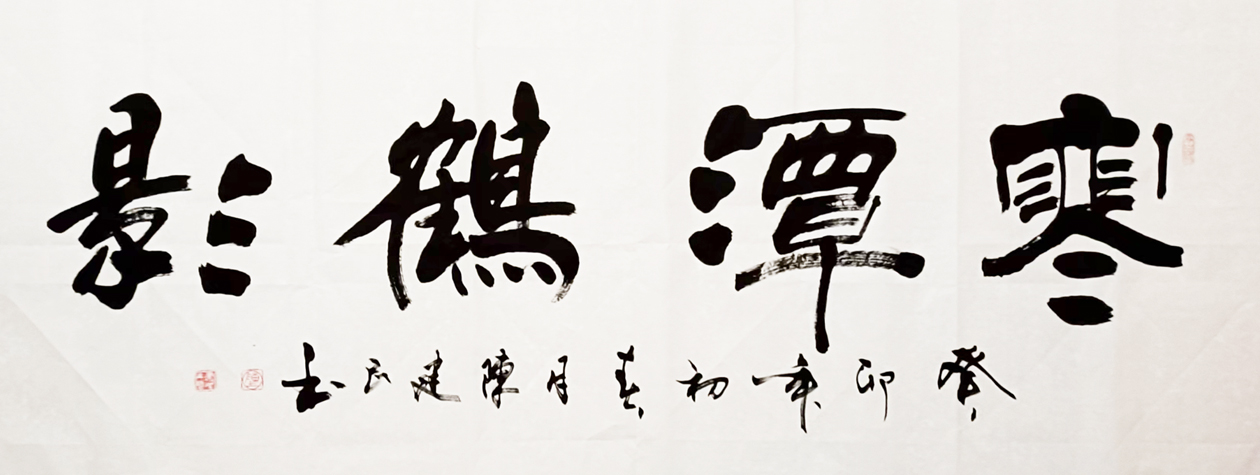 寒潭鶴影
癸卯年初春月陳建民書